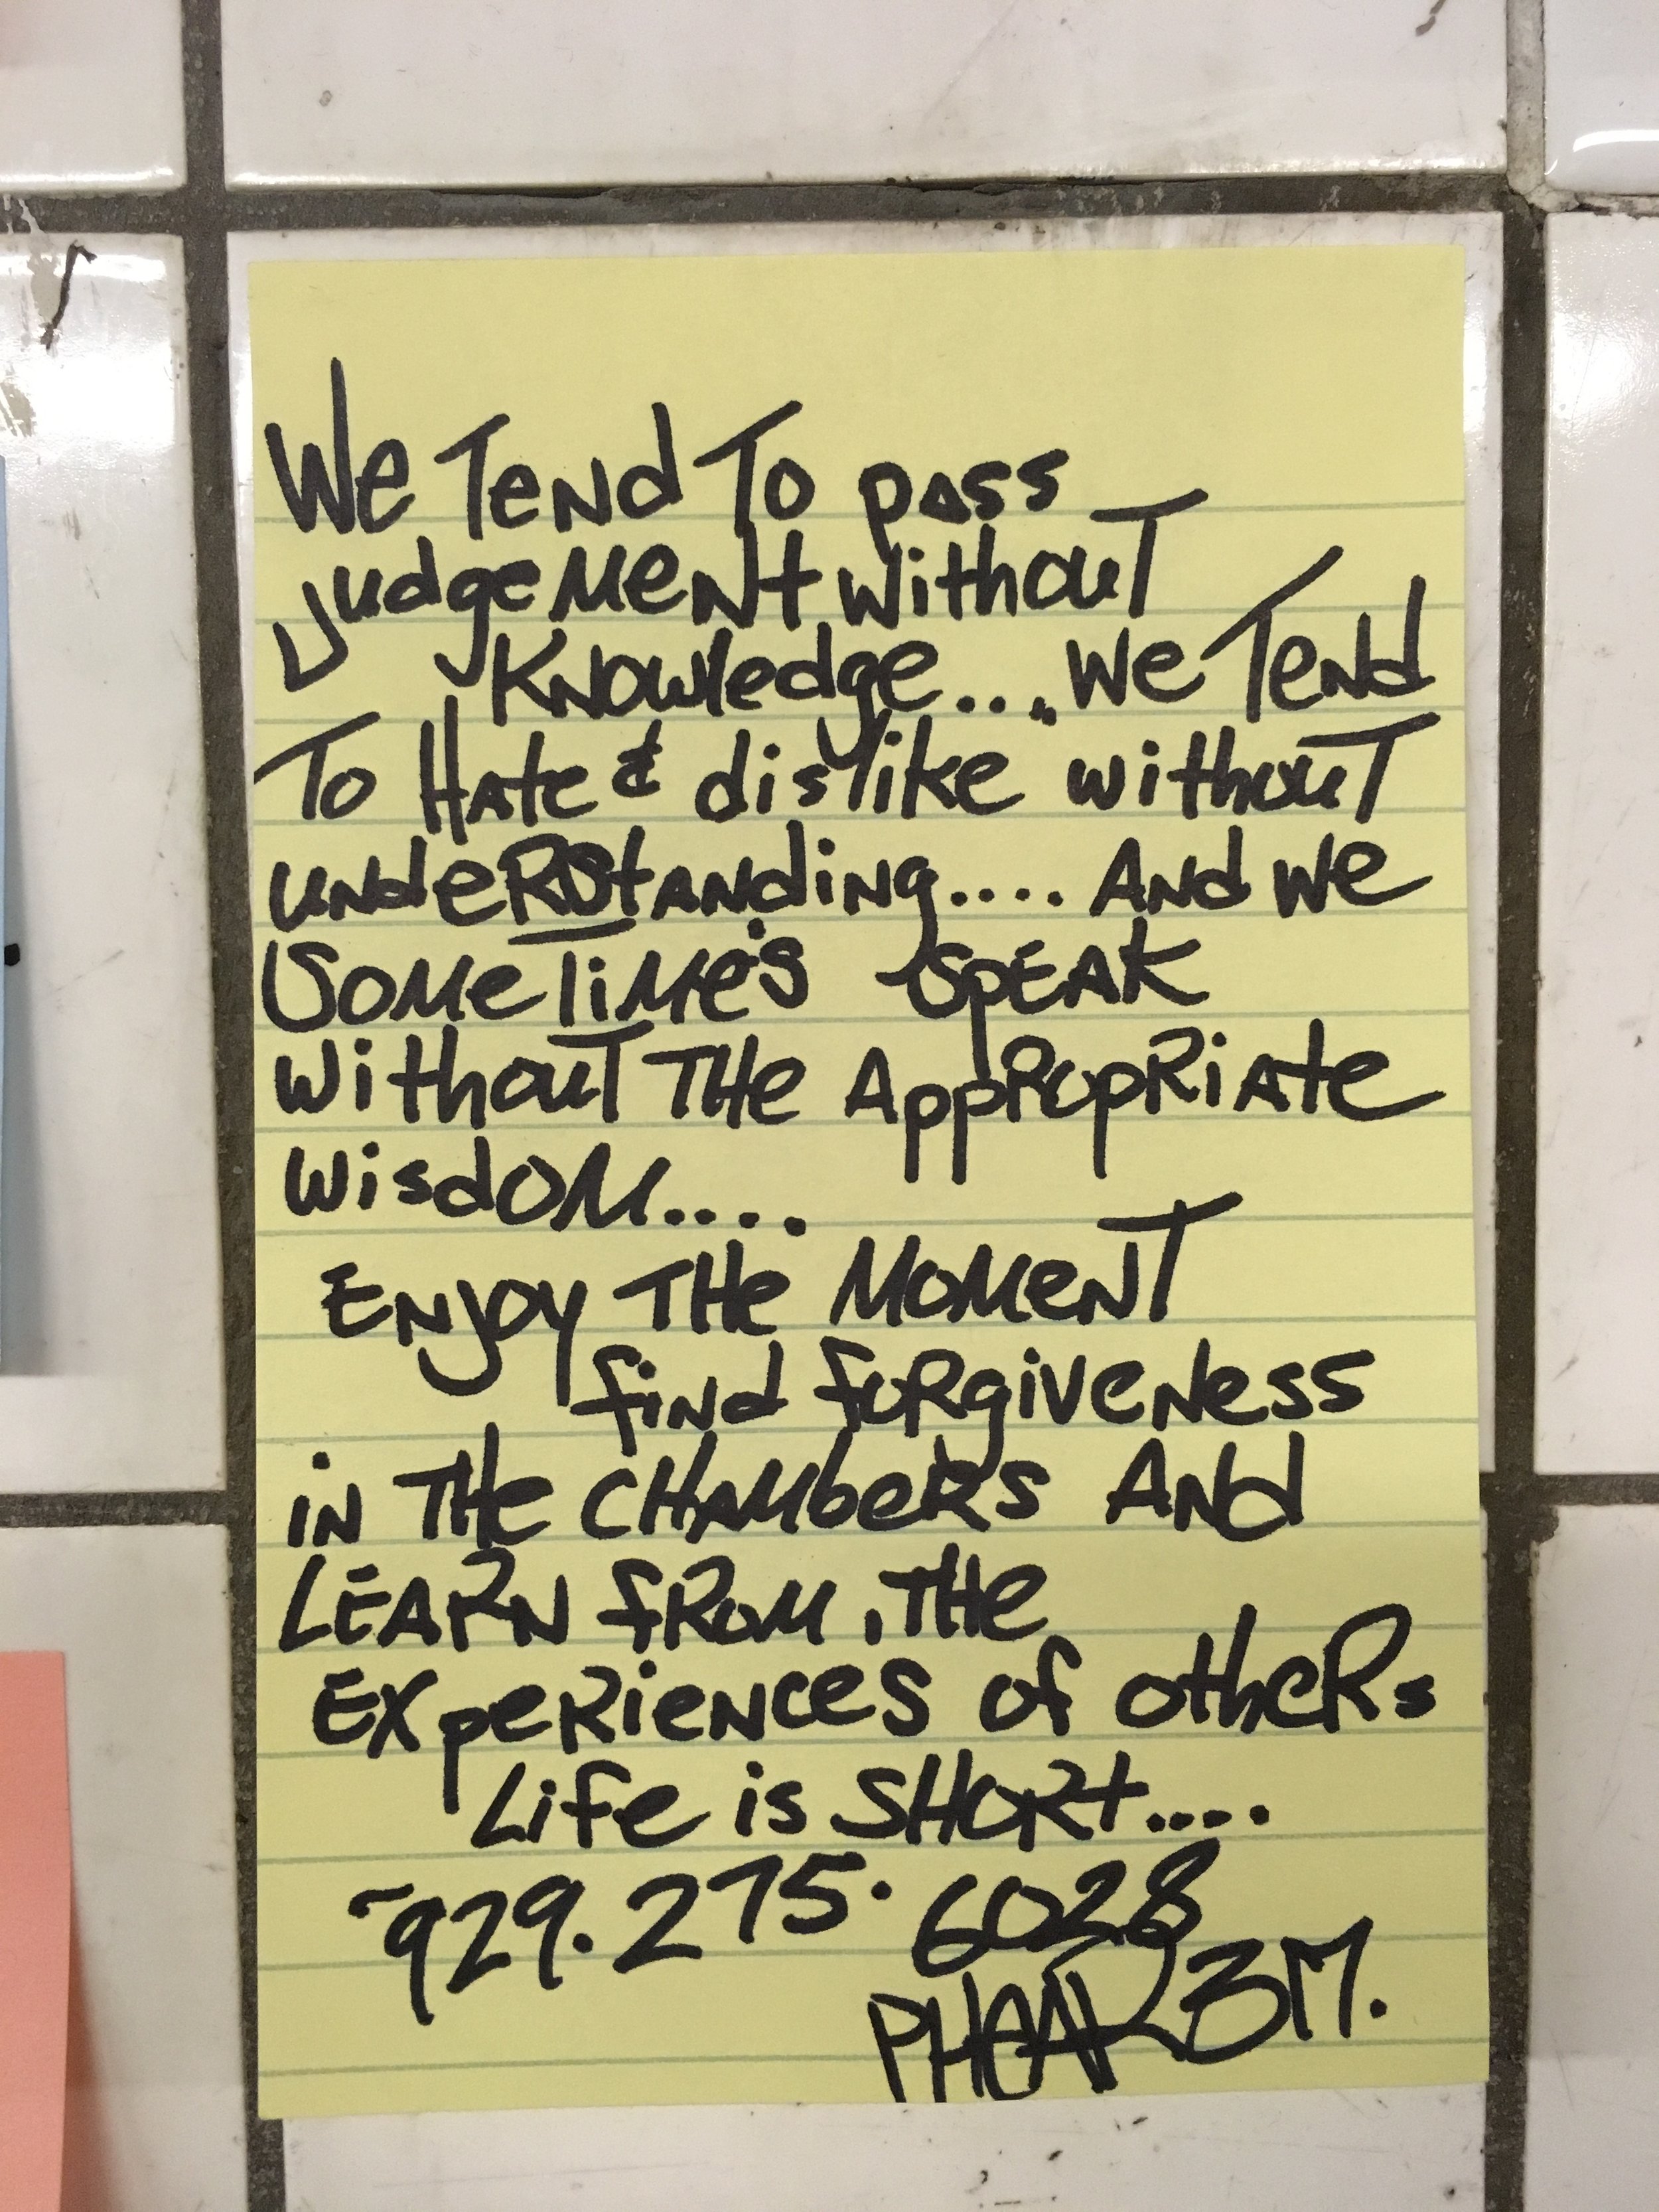 We Tend To pass
judgeMeNt without
KNowledge.... We Tend
To Hate & dislike without
uNdeRStANdiNg.... ANd we
SoMeTiMe's SpEAK
without THe AppRopRiAte
WisdOM....
ENjoy THe MoMeNT
fiNd foRgiveNess
iN THe CHAMbeRs ANd
LEARN fRoM THe
EXpeRieNces of otheRs
Life is SHORt....
929.275.6028